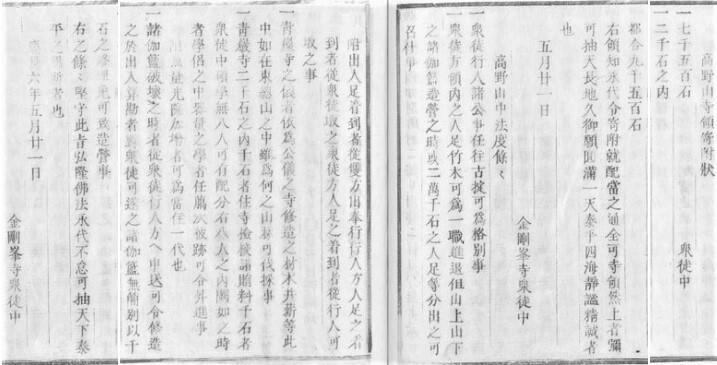 高野山寺領寄附狀
一七千五百石　衆徒中
一二千石之內
都合九千五百石
右領知永代令寄附就配當之通全可寺領然上者彌
可抽天長地久御願圓滿一天泰平四海靜謐精誠者
也
五月廿一日
金剛峯寺衆徒中
高野山中法度條〻
一衆徒行人諸公事任往古掟可爲格別事
一衆徒方領內之人足竹木可爲一職進退但山上山下
之諸伽藍造營之時或二萬千石之人足等分出之可
召仕事
附出人足着到者從雙方出奉行行人方人足之着
到者從衆徒取之衆徒方人足之着到者從行人可
取之事
一靑巖寺之儀者依爲公儀之寺修造之材木幷薪等此
中如在東照山之中雖爲何之山林可伐採事
一靑巖寺二千石之內千石者住寺檢校諸賄料千石者
衆徒中碩學無八人可有配分右八人之內闕如之時
者學侶之中器量之學者任﨟次彼跡可令昇進事
可爲當住一代也
一諸伽藍破壞之時者從衆徒行人方へ申送可令修造
之於出人算勘者對衆徒可遂之諸伽藍無簡別以千
石之修理米可致造營事
右之條〻堅守此旨弘隆佛法永代不怠可抽天下泰
平之者也
六年五月廿一日
金剛峯寺衆徒中